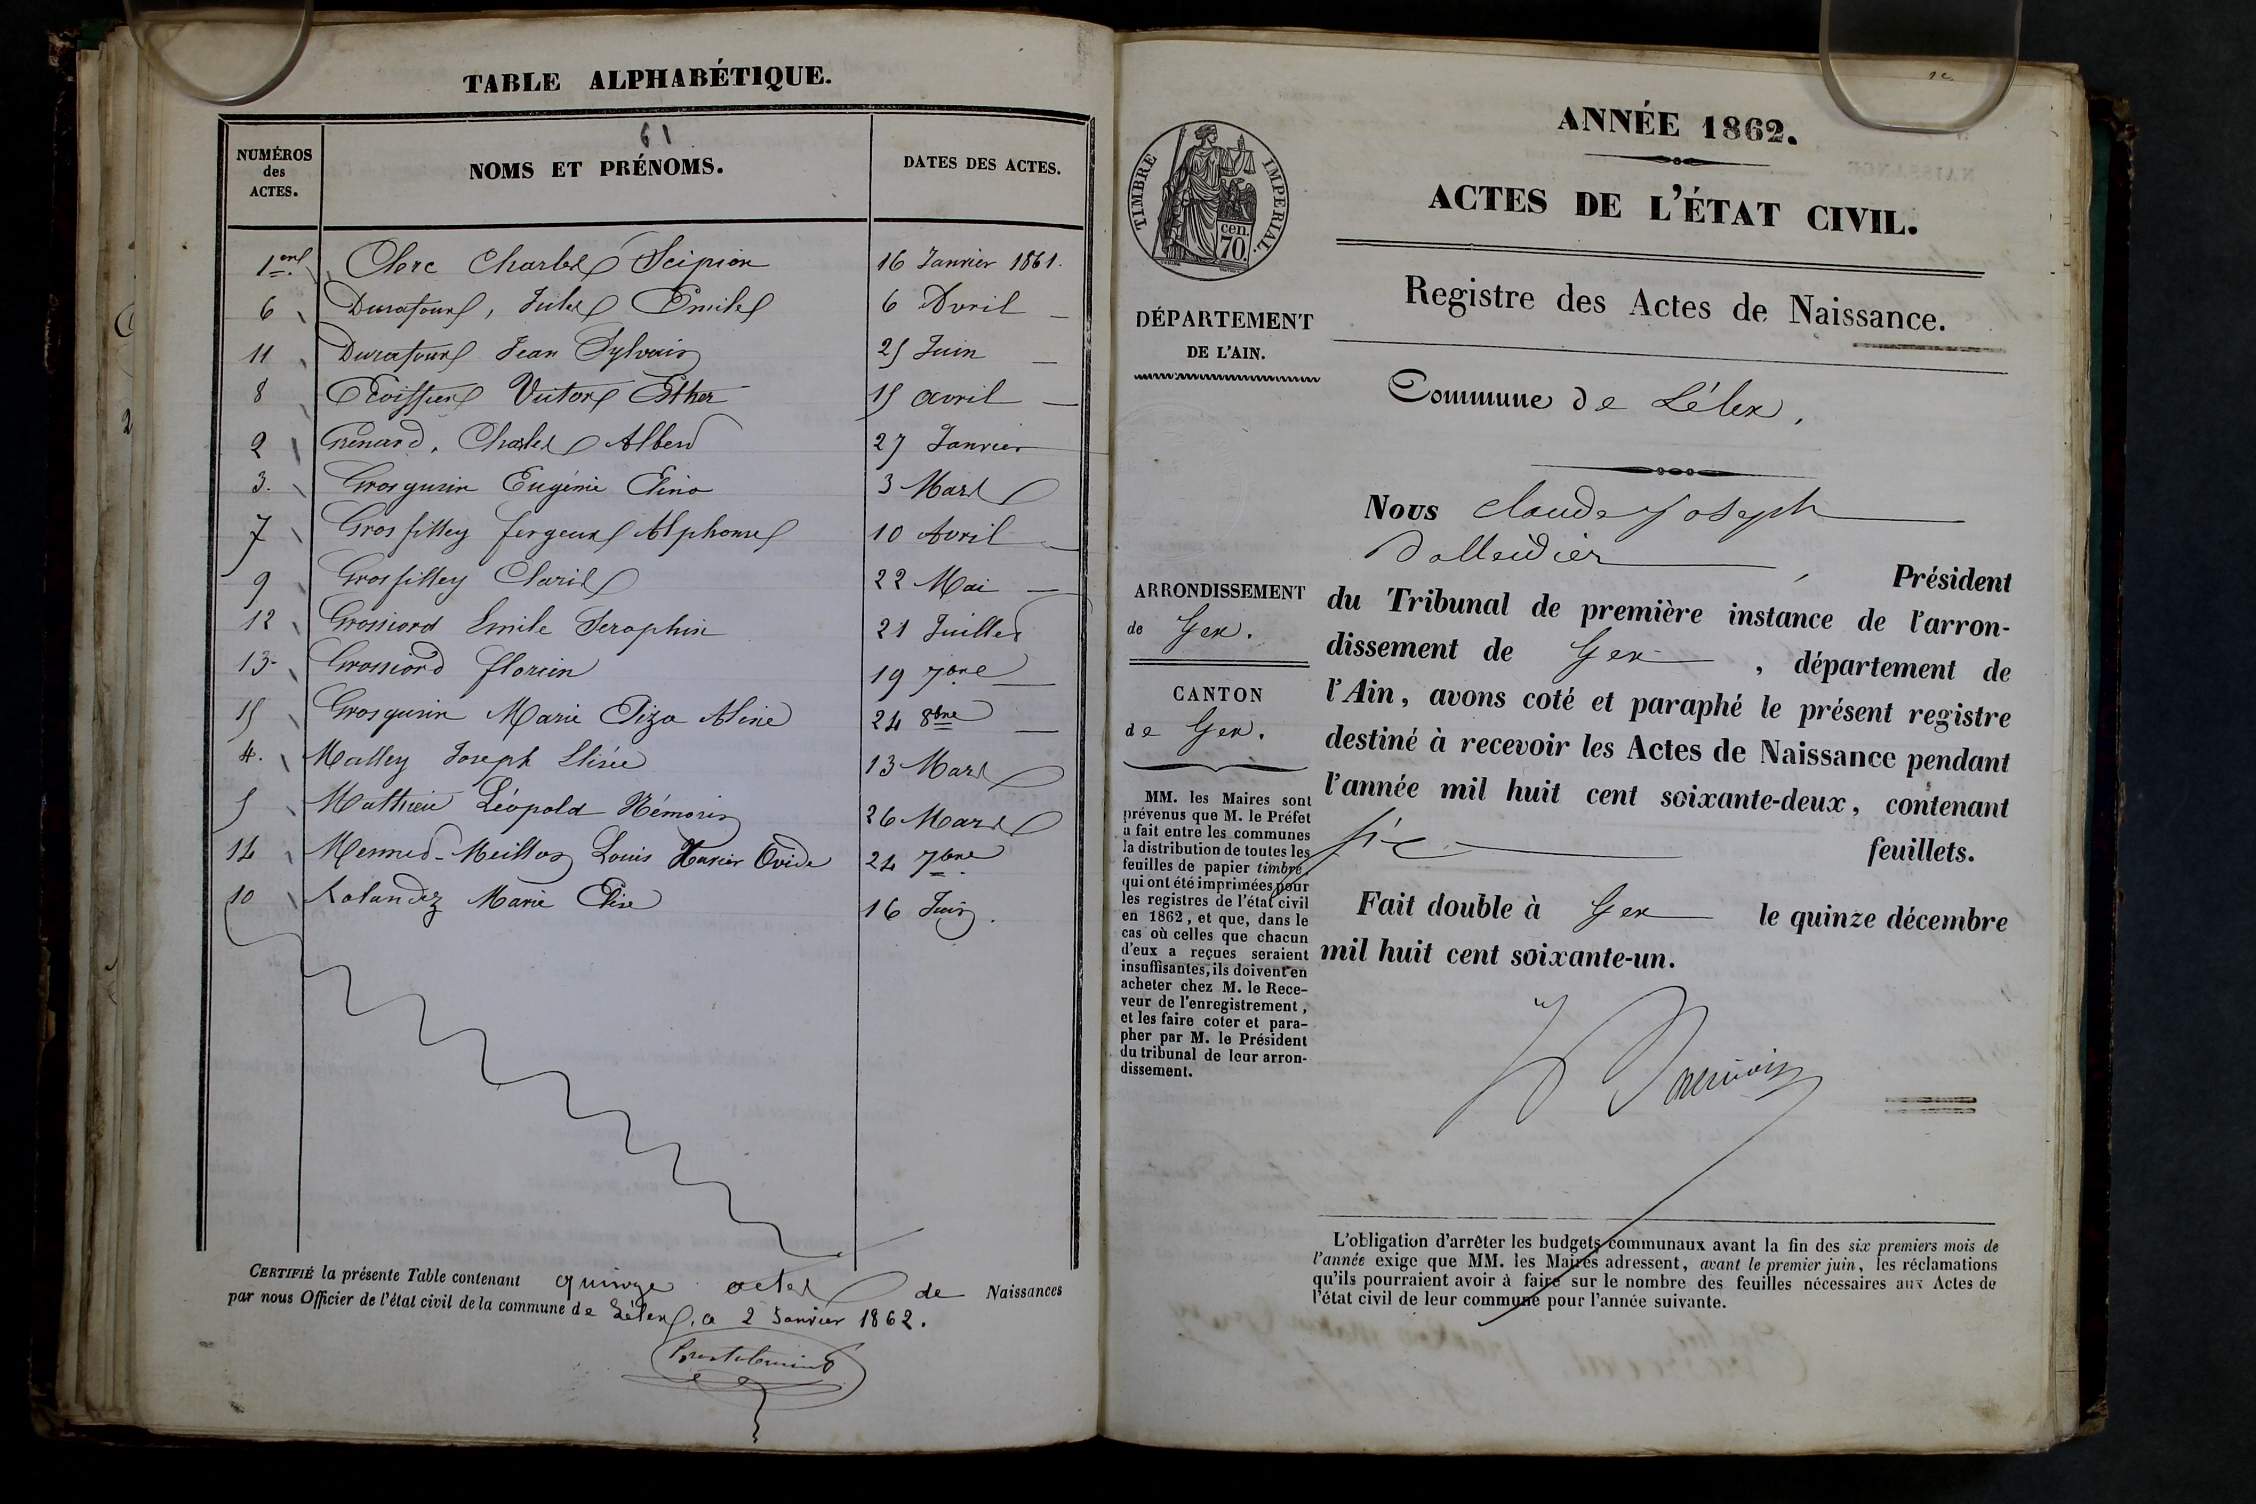 TABLE ALPHABÉTIQUE.
61
NUMÉROS des ACTES. NOMS ET PRÉNOMS. DATES DES ACTES.
1er Clerc Charles Scipion 16 Janvier 1861.
6 Durafour, Jules Emile 6 Avril —
11 Durafour Jean Sylvain 25 Juin —
8 Victor Esther 15 avril —
2 Grenard, Charles Albert 27 Janvier
3. Grosgurin Eugénie 3 Mars
7 Grosfilley fergeux Alphonse 10 Avril —
9 Grosfilley Claris 22 Mai —
12 Grossiord Emile Seraphin 21 Juillet
13 Grossiord florein 19 7bre —
15 Grosgurin Marie Eliza Aline 24 8bre —
4. Malley Joseph Elisée 13 Mars
5 Mathieu Léopold Némorin 26 Mars
14 Mermet-Meillon Louis Xavier Ovide 24 7bre.
10 Rolandez Marie Elise 16 Juin.
CERTIFIÉ la présente Table contenant quinze actes de Naissances
par nous Officier de l'état civil de la commune de Lélex, ce 2 Janvier 1862.
ANNÉE 1862.
ACTES DE L'ÉTAT CIVIL.
Registre des Actes de Naissance.
TIMBRE IMPERIAL.
cen.
70.
DÉPARTEMENT
DE L'AIN.
Commune de Lélex.
Nous Claude Joseph
, Président
du Tribunal de première instance de l'arron-
dissement de Gex, département de
l'Ain, avons coté et paraphé le présent registre
destiné à recevoir les Actes de Naissance pendant
l'année mil huit cent soixante-deux, contenant
six feuillets.
Fait double à Gex le quinze décembre
mil huit cent soixante-un.
ARRONDISSEMENT
de Gex.
CANTON
de Gex.
MM. les Maires sont
prévenus que M. le Préfet
a fait entre les communes
la distribution de toutes les
feuilles de papier timbré,
qui ont été imprimées pour
les registres de l'état civil
en 1862, et que, dans le
cas où celles que chacun
d'eux a reçues seraient
insuffisantes, ils doivent en
acheter chez M. le Rece-
veur de l'enregistrement,
et les faire coter et para-
pher par M. le Président
du tribunal de leur arron-
dissement.
L'obligation d'arrêter les budgets communaux avant la fin des six premiers mois de
l'année exige que MM. les Maires adressent, avant le premier juin, les réclamations
qu'ils pourraient avoir à faire sur le nombre des feuilles nécessaires aux Actes de
l'état civil de leur commune pour l'année suivante.